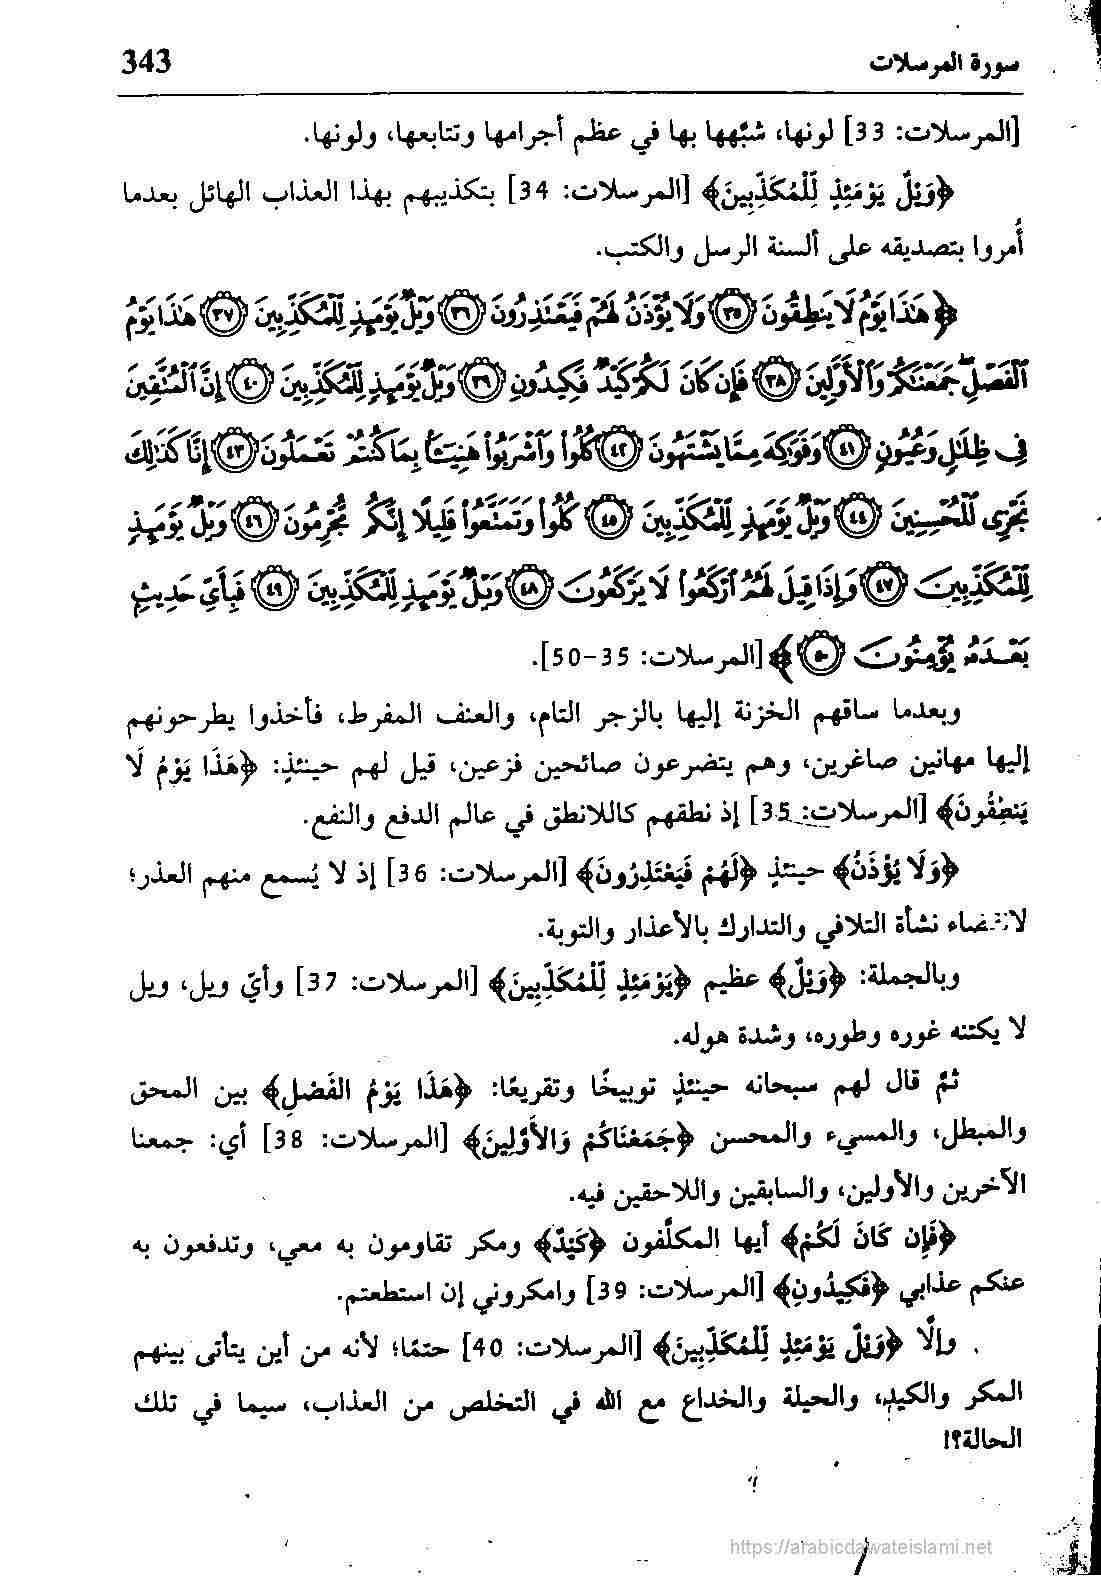 سورة المرسلات 343
[المرسلات: 33] لونها، شبَّهها بها في عظم أجرامها وتتابعها، ولونها.
﴿وَيْلٌ يَوْمَئِذٍ لِّلْمُكَذِّبِينَ﴾ [المرسلات: 34] بتكذيبهم بهذا العذاب الهائل بعدما
أُمروا بتصديقه على ألسنة الرسل والكتب.
﴿هَٰذَا يَوْمُ لَا يَنطِقُونَ ٣٥ وَلَا يُؤْذَنُ لَهُمْ فَيَعْتَذِرُونَ ٣٦ وَيْلٌ يَوْمَئِذٍ لِّلْمُكَذِّبِينَ ٣٧ هَٰذَا يَوْمُ
ٱلْفَصْلِ ۖ جَمَعْنَٰكُمْ وَٱلْأَوَّلِينَ ٣٨ فَإِن كَانَ لَكُمْ كَيْدٌ فَكِيدُونِ ٣٩ وَيْلٌ يَوْمَئِذٍ لِّلْمُكَذِّبِينَ ٤٠ إِنَّ ٱلْمُتَّقِينَ
فِى ظِلَٰلٍ وَعُيُونٍ ٤١ وَفَوَٰكِهَ مِمَّا يَشْتَهُونَ ٤٢ كُلُوا۟ وَٱشْرَبُوا۟ هَنِيٓـًٔۢا بِمَا كُنتُمْ تَعْمَلُونَ ٤٣ إِنَّا كَذَٰلِكَ
نَجْزِى ٱلْمُحْسِنِينَ ٤٤ وَيْلٌ يَوْمَئِذٍ لِّلْمُكَذِّبِينَ ٤٥ كُلُوا۟ وَتَمَتَّعُوا۟ قَلِيلًا إِنَّكُم مُّجْرِمُونَ ٤٦ وَيْلٌ يَوْمَئِذٍ
لِّلْمُكَذِّبِينَ ٤٧ وَإِذَا قِيلَ لَهُمُ ٱرْكَعُوا۟ لَا يَرْكَعُونَ ٤٨ وَيْلٌ يَوْمَئِذٍ لِّلْمُكَذِّبِينَ ٤٩ فَبِأَىِّ حَدِيثٍۭ
بَعْدَهُۥ يُؤْمِنُونَ ٥٠﴾ [المرسلات: 35-50].
وبعدما ساقهم الخزنة إليها بالزجر التام، والعنف المفرط، فأخذوا يطرحونهم
إليها مهانين صاغرين، وهم يتضرعون صائحين فزعين، قيل لهم حينئذٍ: ﴿هَذَا يَوْمُ لَا
يَنطِقُونَ﴾ [المرسلات: 35] إذ نطقهم كاللانطق في عالم الدفع والنفع.
﴿وَلَا يُؤْذَنُ﴾ حينئذٍ ﴿لَهُمْ فَيَعْتَذِرُونَ﴾ [المرسلات: 36] إذ لا يُسمع منهم العذر؛
لانقضاء نشأة التلافي والتدارك بالأعذار والتوبة.
وبالجملة: ﴿وَيْلٌ﴾ عظيم ﴿يَوْمَئِذٍ لِّلْمُكَذِّبِينَ﴾ [المرسلات: 37] وأيّ ويل، ويل
لا يكتنه غوره وطوره، وشدة هوله.
ثمَّ قال لهم سبحانه حينئذٍ توبيخًا وتقريعًا: ﴿هَذَا يَوْمُ الفَصْلِ﴾ بين المحق
والمبطل، والمسيء والمحسن ﴿جَمَعْنَاكُمْ وَالأَوَّلِينَ﴾ [المرسلات: 38] أي: جمعنا
الآخرين والأولين، والسابقين واللاحقين فيه.
﴿فَإِن كَانَ لَكُمْ﴾ أيها المكلَّفون ﴿كَيْدٌ﴾ ومكر تقاومون به معي، وتدفعون به
عنكم عذابي ﴿فَكِيدُونِ﴾ [المرسلات: 39] وامكروني إن استطعتم.
وإلَّا ﴿وَيْلٌ يَوْمَئِذٍ لِّلْمُكَذِّبِينَ﴾ [المرسلات: 40] حتمًا؛ لأنه من أين يتأتى بينهم
المكر والكيد، والحيلة والخداع مع الله في التخلص من العذاب، سيما في تلك
الحالة؟!
https://arabicdawateislami.net